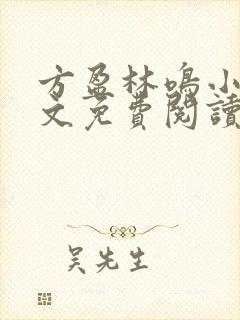 方盈林鳴小
文免費閱讀
吴先生